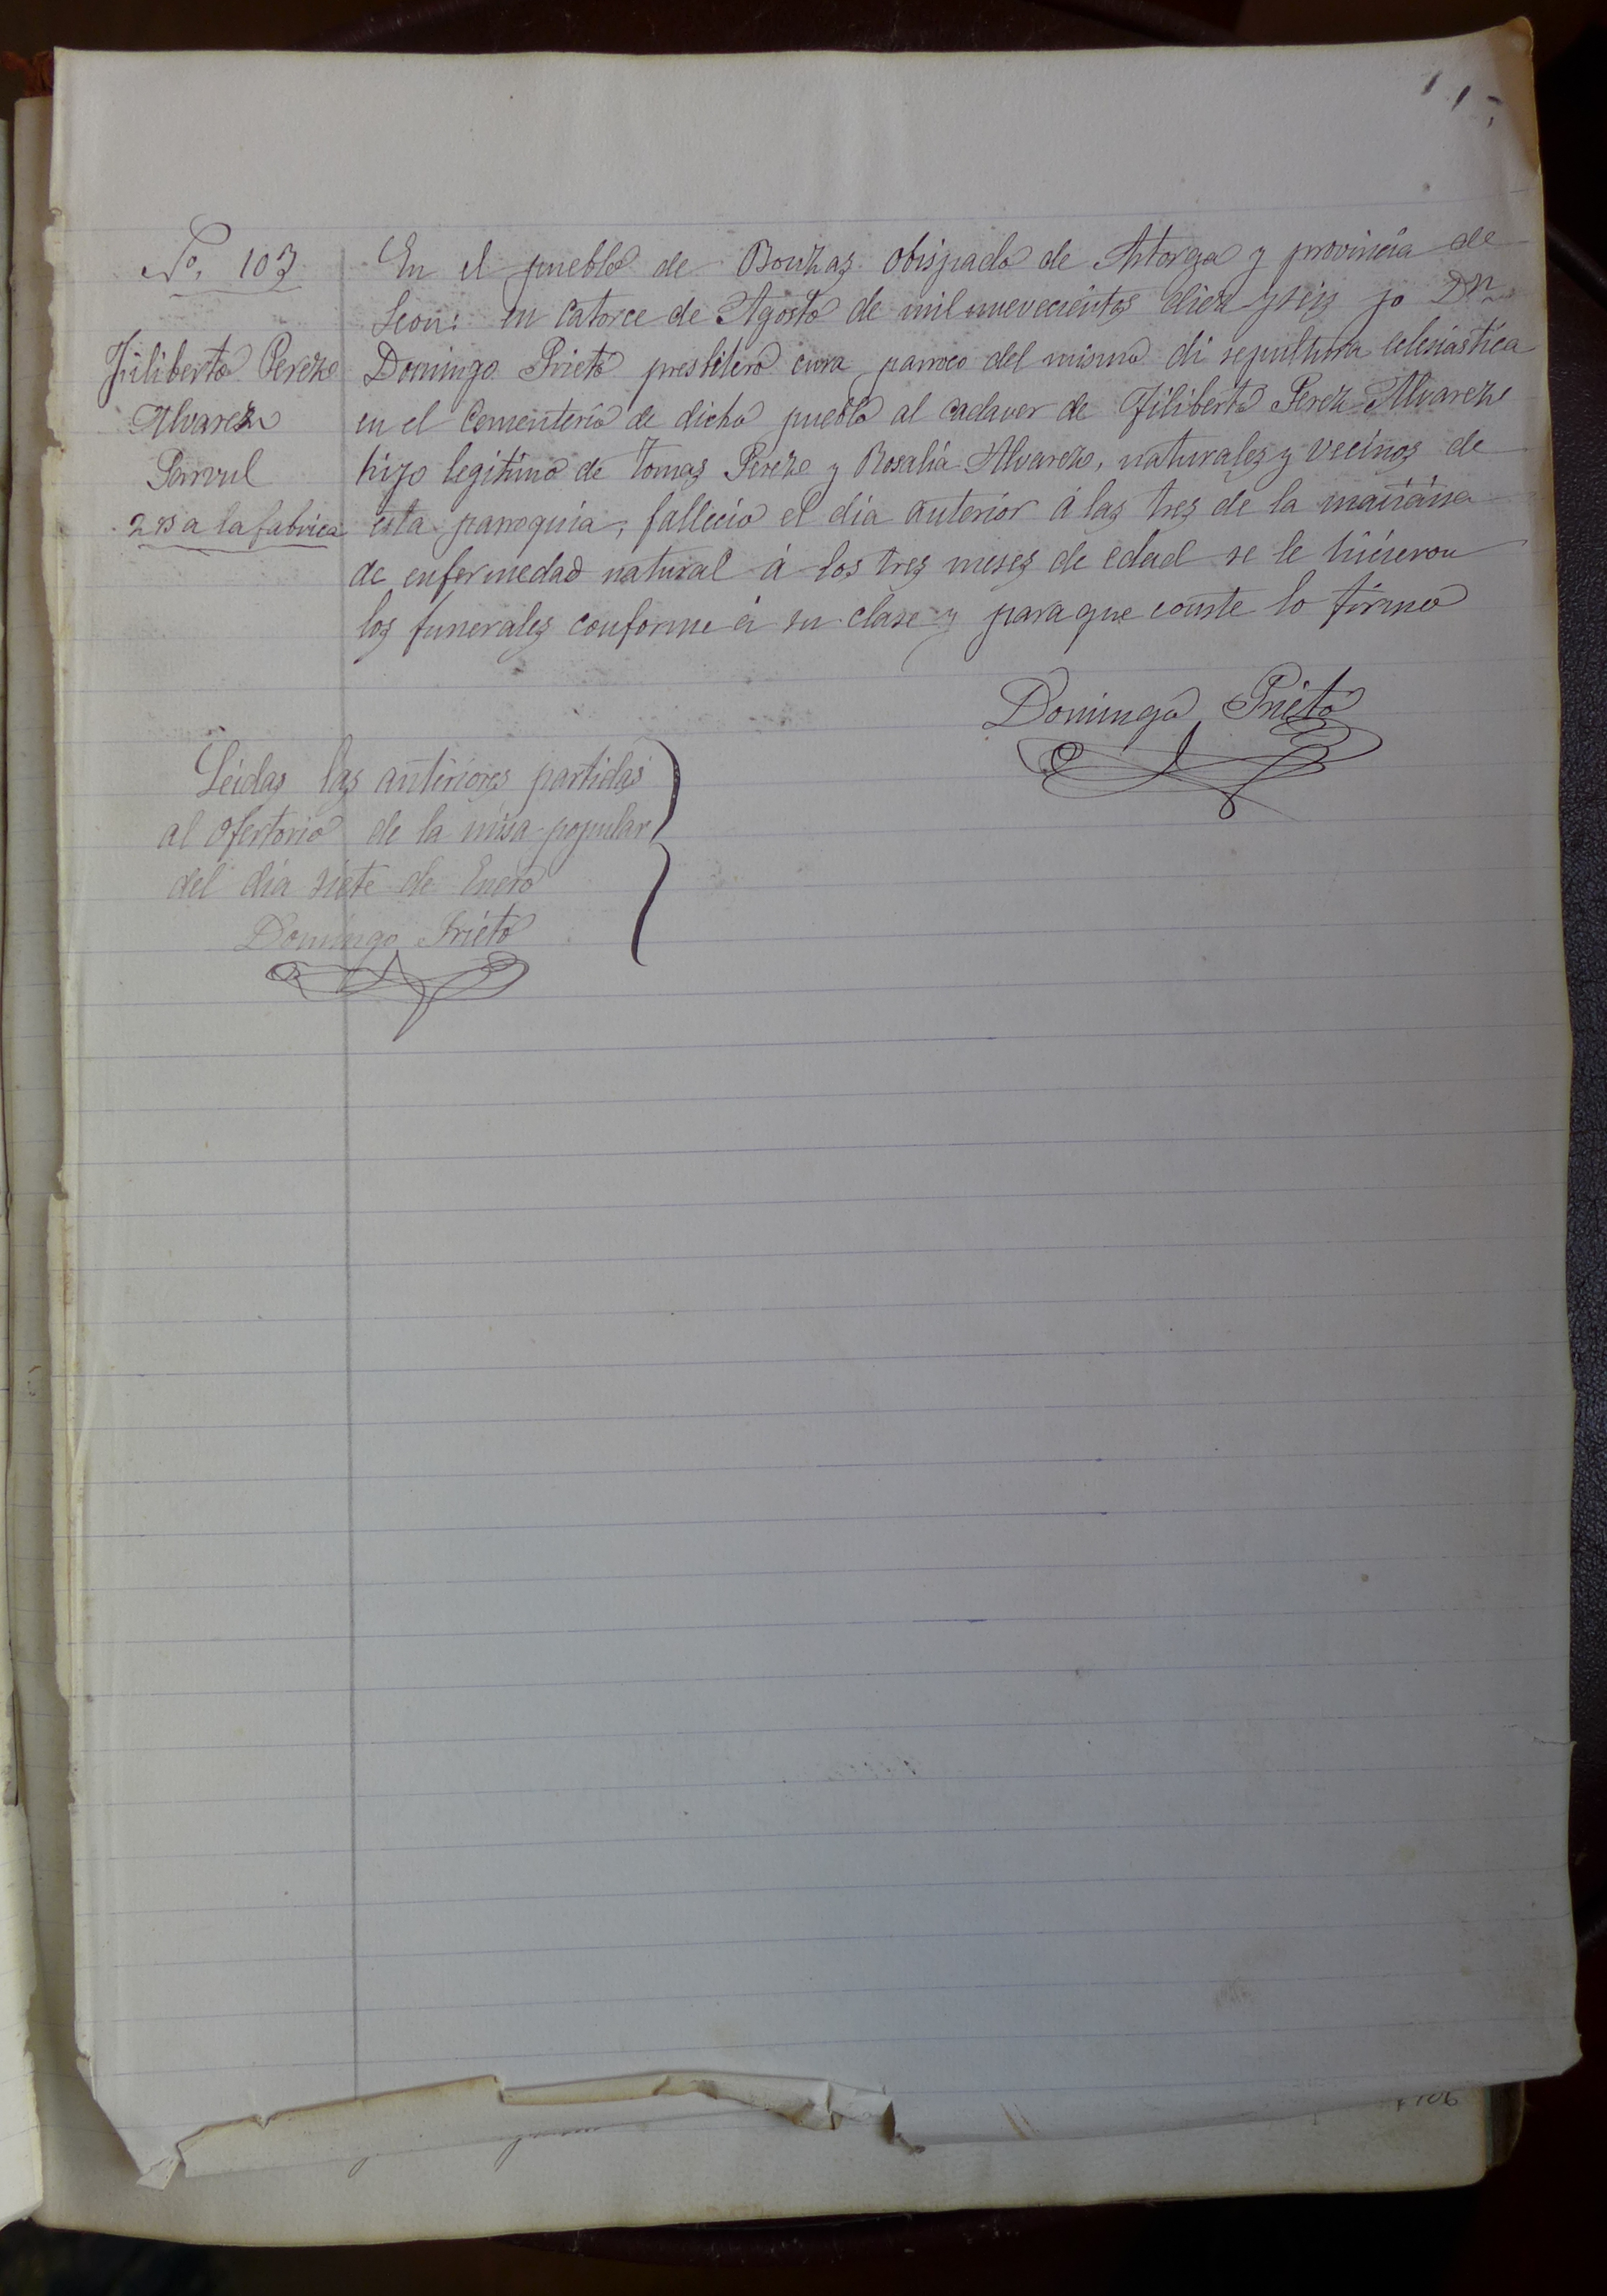 Nº. 103
Filiberto Perez
Alvarez
Parvul
2 rs a la fabrica
En el pueblo de Bouzas Obispado de Astorga y provincia de
Leon: en catorce de Agosto de mil nuevecientos diez y seis yo Dn
Domingo Prieto presbitero cura parroco del mismo di sepultura eclesiástica
en el Cementerio de dicho pueblo al cadaver de Filiberto Perez Alvarez
hijo legitimo de Tomas Perez y Rosalía Alvarez, naturales y vecinos de
esta parroquia, fallecio el día anterior á las tres de la mañana
de enfermedad natural á los tres meses de edad se le hicieron
los funerales conforme á su clase y para que conste lo firmo
Domingo Prieto
Leidas las anteriores partidas
al ofertorio de la misa popular
del día siete de Enero
Domingo Prieto